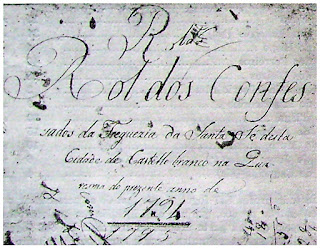 R
Rol dos Confes
sados da Freguezia da Santa Sé desta
Cidade de Castello branco na Qua
resma do prezente anno de
1794
1795